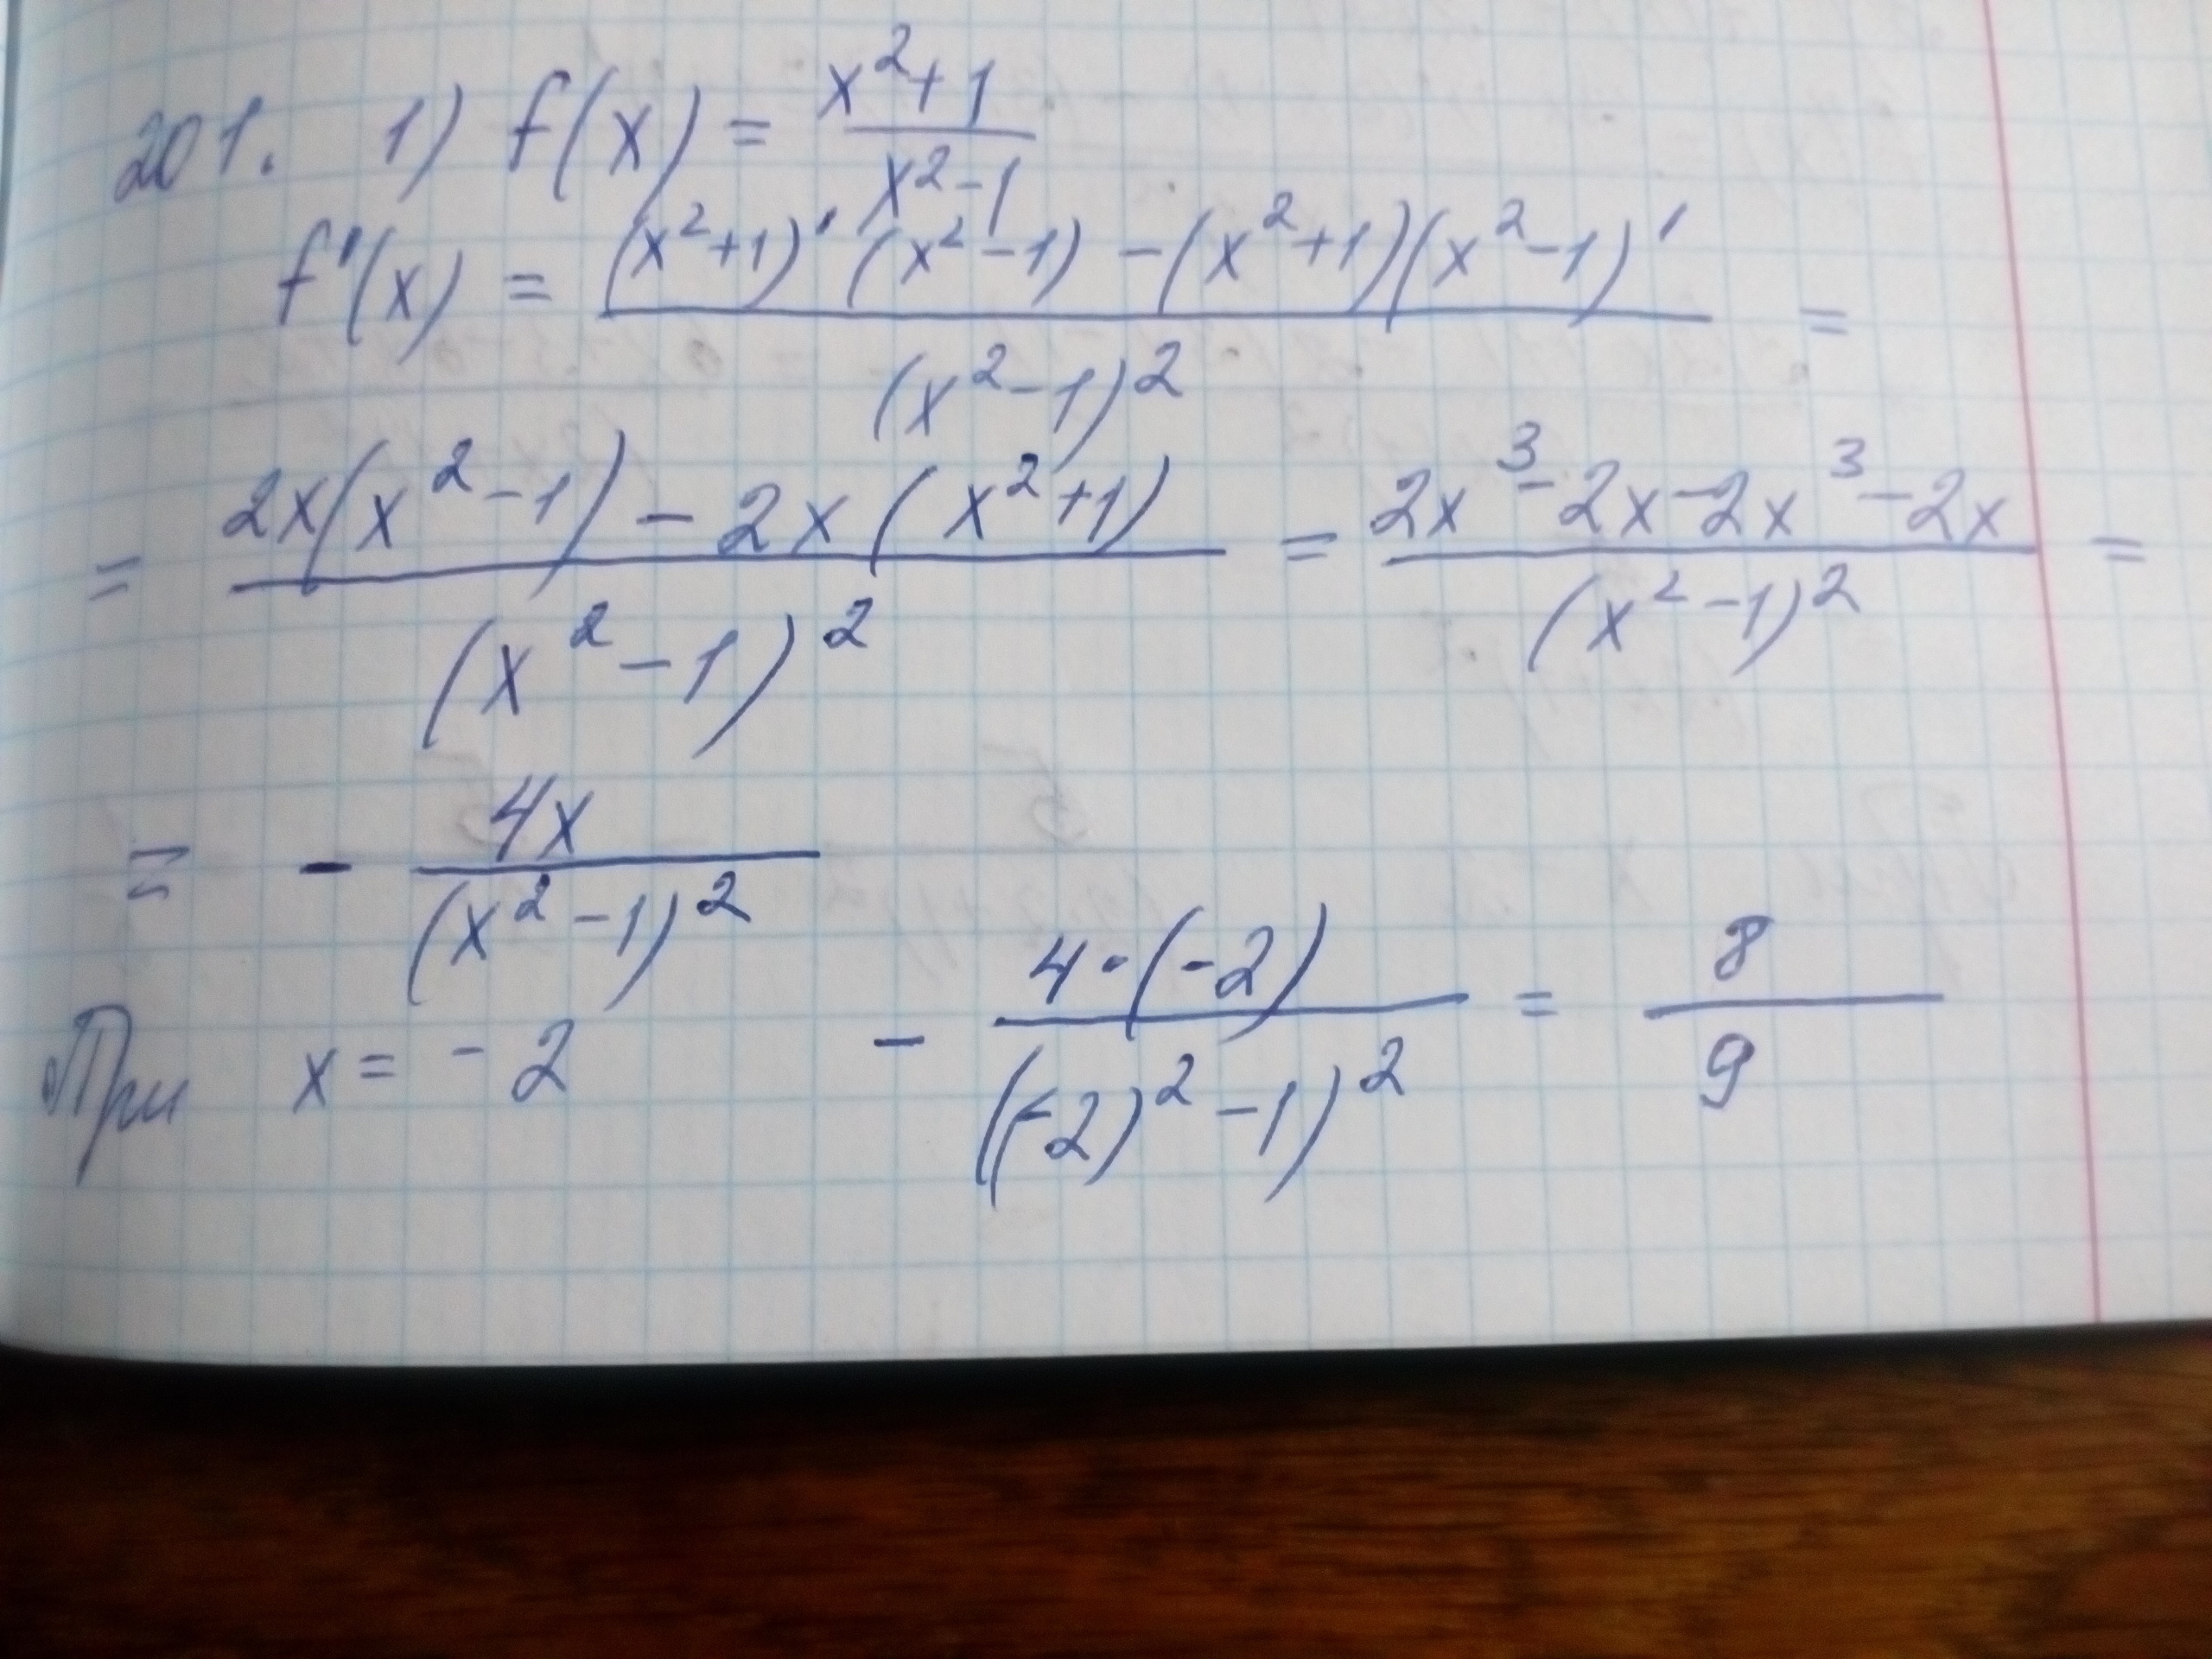 201. 1) f(x) = (x²+1)/(x²-1)
f'(x) = ((x²+1)' (x²-1) - (x²+1)(x²-1)')/(x²-1)² =
= (2x(x²-1) - 2x(x²+1))/(x²-1)² = (2x³-2x-2x³-2x)/(x²-1)² =
= - 4x/(x²-1)²
При x = -2 - (4·(-2))/((-2)²-1)² = 8/9